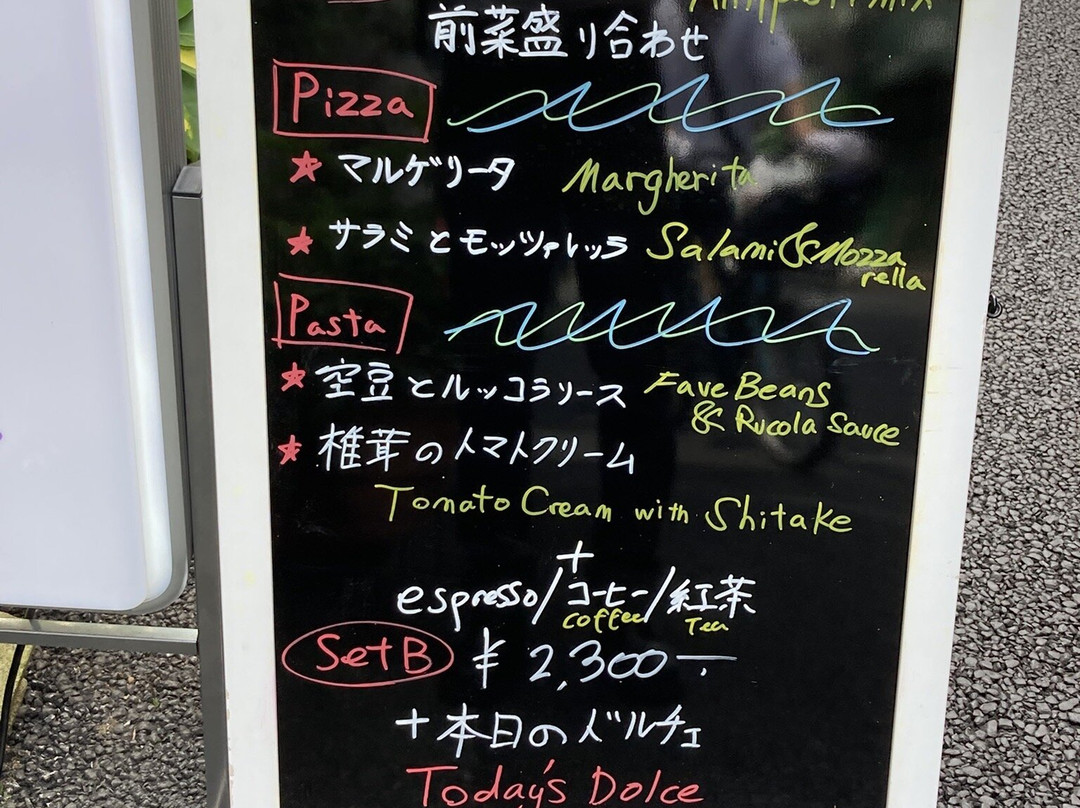 前菜盛り合わせ
Pizza
★ マルゲリータ Margherita
★ サラミとモッツァレッラ Salami & Mozza
rella
Pasta
★ 空豆とルッコラソース Fave Beans
& Rucola Sauce
★ 椎茸のトマトクリーム
Tomato Cream with Shitake
+
espresso/コーヒー/紅茶
coffee Tea
Set B ¥2,300ー
+本日のドルチェ
Today's Dolce